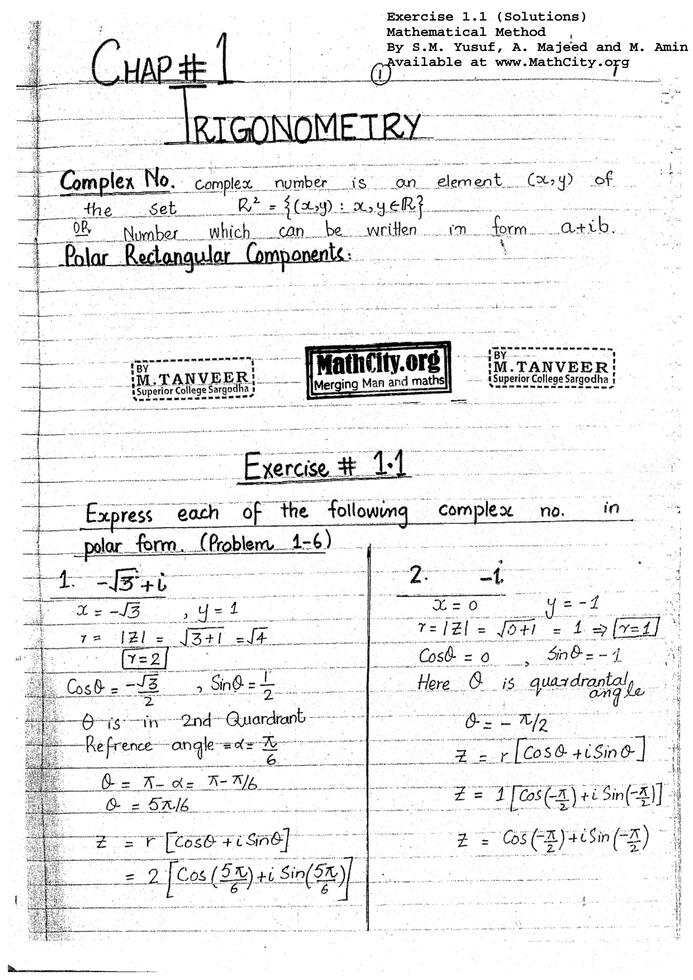 Exercise 1.1 (Solutions)
Mathematical Method
By S.M. Yusuf, A. Majeed and M. Amin
Available at www.MathCity.org
CHAP # 1
1
1
TRIGONOMETRY
Complex No. complex number is an element (x,y) of
the set R² = {(x,y) : x,y ∈ R}
OR Number which can be written in form a+ib.
Polar Rectangular Components:
BY
M.TANVEER
Superior College Sargodha
MathCity.org
Merging Man and maths
BY
M.TANVEER
Superior College Sargodha
Exercise # 1.1
Express each of the following complex no. in
polar form. (Problem 1-6)
1. -√3 + i
x = -√3 , y = 1
r = |Z| = √3+1 = √4
r=2
Cosθ = -√3/2 , Sinθ = 1/2
θ is in 2nd Quardrant
Refrence angle = α = π/6
θ = π - α = π - π/6
θ = 5π/6
Z = r [Cosθ + i Sinθ]
= 2 [Cos(5π/6) + i Sin(5π/6)]
2. -i
x = 0 y = -1
r = |Z| = √0+1 = 1 ⇒ r=1
Cosθ = 0 , Sinθ = -1
Here θ is quardrantal
angle
θ = - π/2
Z = r [Cosθ + i Sinθ]
Z = 1 [Cos(-π/2) + i Sin(-π/2)]
Z = Cos(-π/2) + i Sin(-π/2)